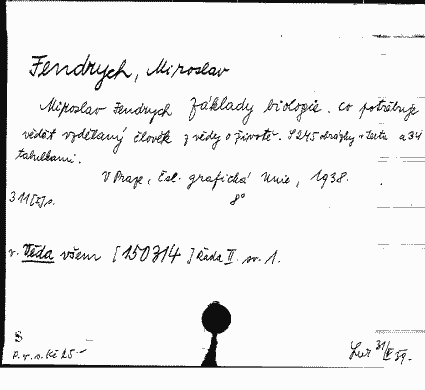 Fendrych, Miroslav
Miroslav Fendrych Základy biologie. Co potřebuje
vědět vzdělaný člověk z vědy o životě. S 245 obrázky v textu a 34
tabulkami.
V Praze, Čsl. grafická Unie, 1938.
311 s. 8°
v. Věda všem [150314] Řada II. sv. 1.
S
P. v. s. Kč 25.–
31/ 39.